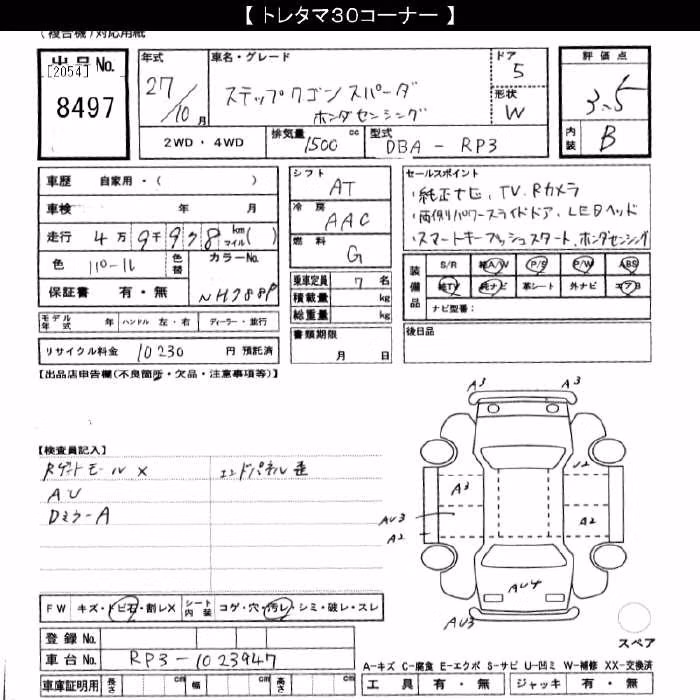 【 トレタマ30コーナー 】
(複合機)対応用紙
出品No.
[2054]
8497
年式 27/10月
車名・グレード
ステップワゴン スパーダ
ホンダセンシング
ドア 5
形状 W
評価点 3.5
内装 B
2WD・4WD
排気量 1500 cc
型式 DBA-RP3
車歴 自家用・( )
車検 年 月
走行 4万9千978 km マイル( )
色 色替 カラーNo.
NH788P
保証書 有・無
モデル年式 年 ハンドル 左・右 ディーラー・並行
リサイクル料金 10230 円 預託済
シフト AT
冷房 AAC
燃料 G
乗車定員 7 名
積載量 kg
総重量 kg
書類期限
月 日
セールスポイント
・純正ナビ、TV、Rカメラ
・両側パワースライドドア、LEDヘッド
・スマートキープッシュスタート、ホンダセンシング
装備品
S/R 純A/W P/S P/W ABS
純TV 純ナビ 革シート 外ナビ エアB
ナビ型番:
後日品
【出品店申告欄(不良箇所・欠品・注意事項等)】
【検査員記入】
Rゲートモール X
エンドパネル歪
AU
Dミラー A
A3 A3
U2
A3
AU3
A2 A2
AU4
AU3
スペア
FW キズ・トビ石・割レX シート内装 コゲ・穴・汚レ・シミ・破レ・スレ
登録No.
車台No. RP3-1023947
車庫証明用 長さ cm 幅 cm 高さ cm
A-キズ C-腐食 E-エクボ S-サビ U-凹ミ W-補修 XX-交換済
工具 有・無 ジャッキ 有・無